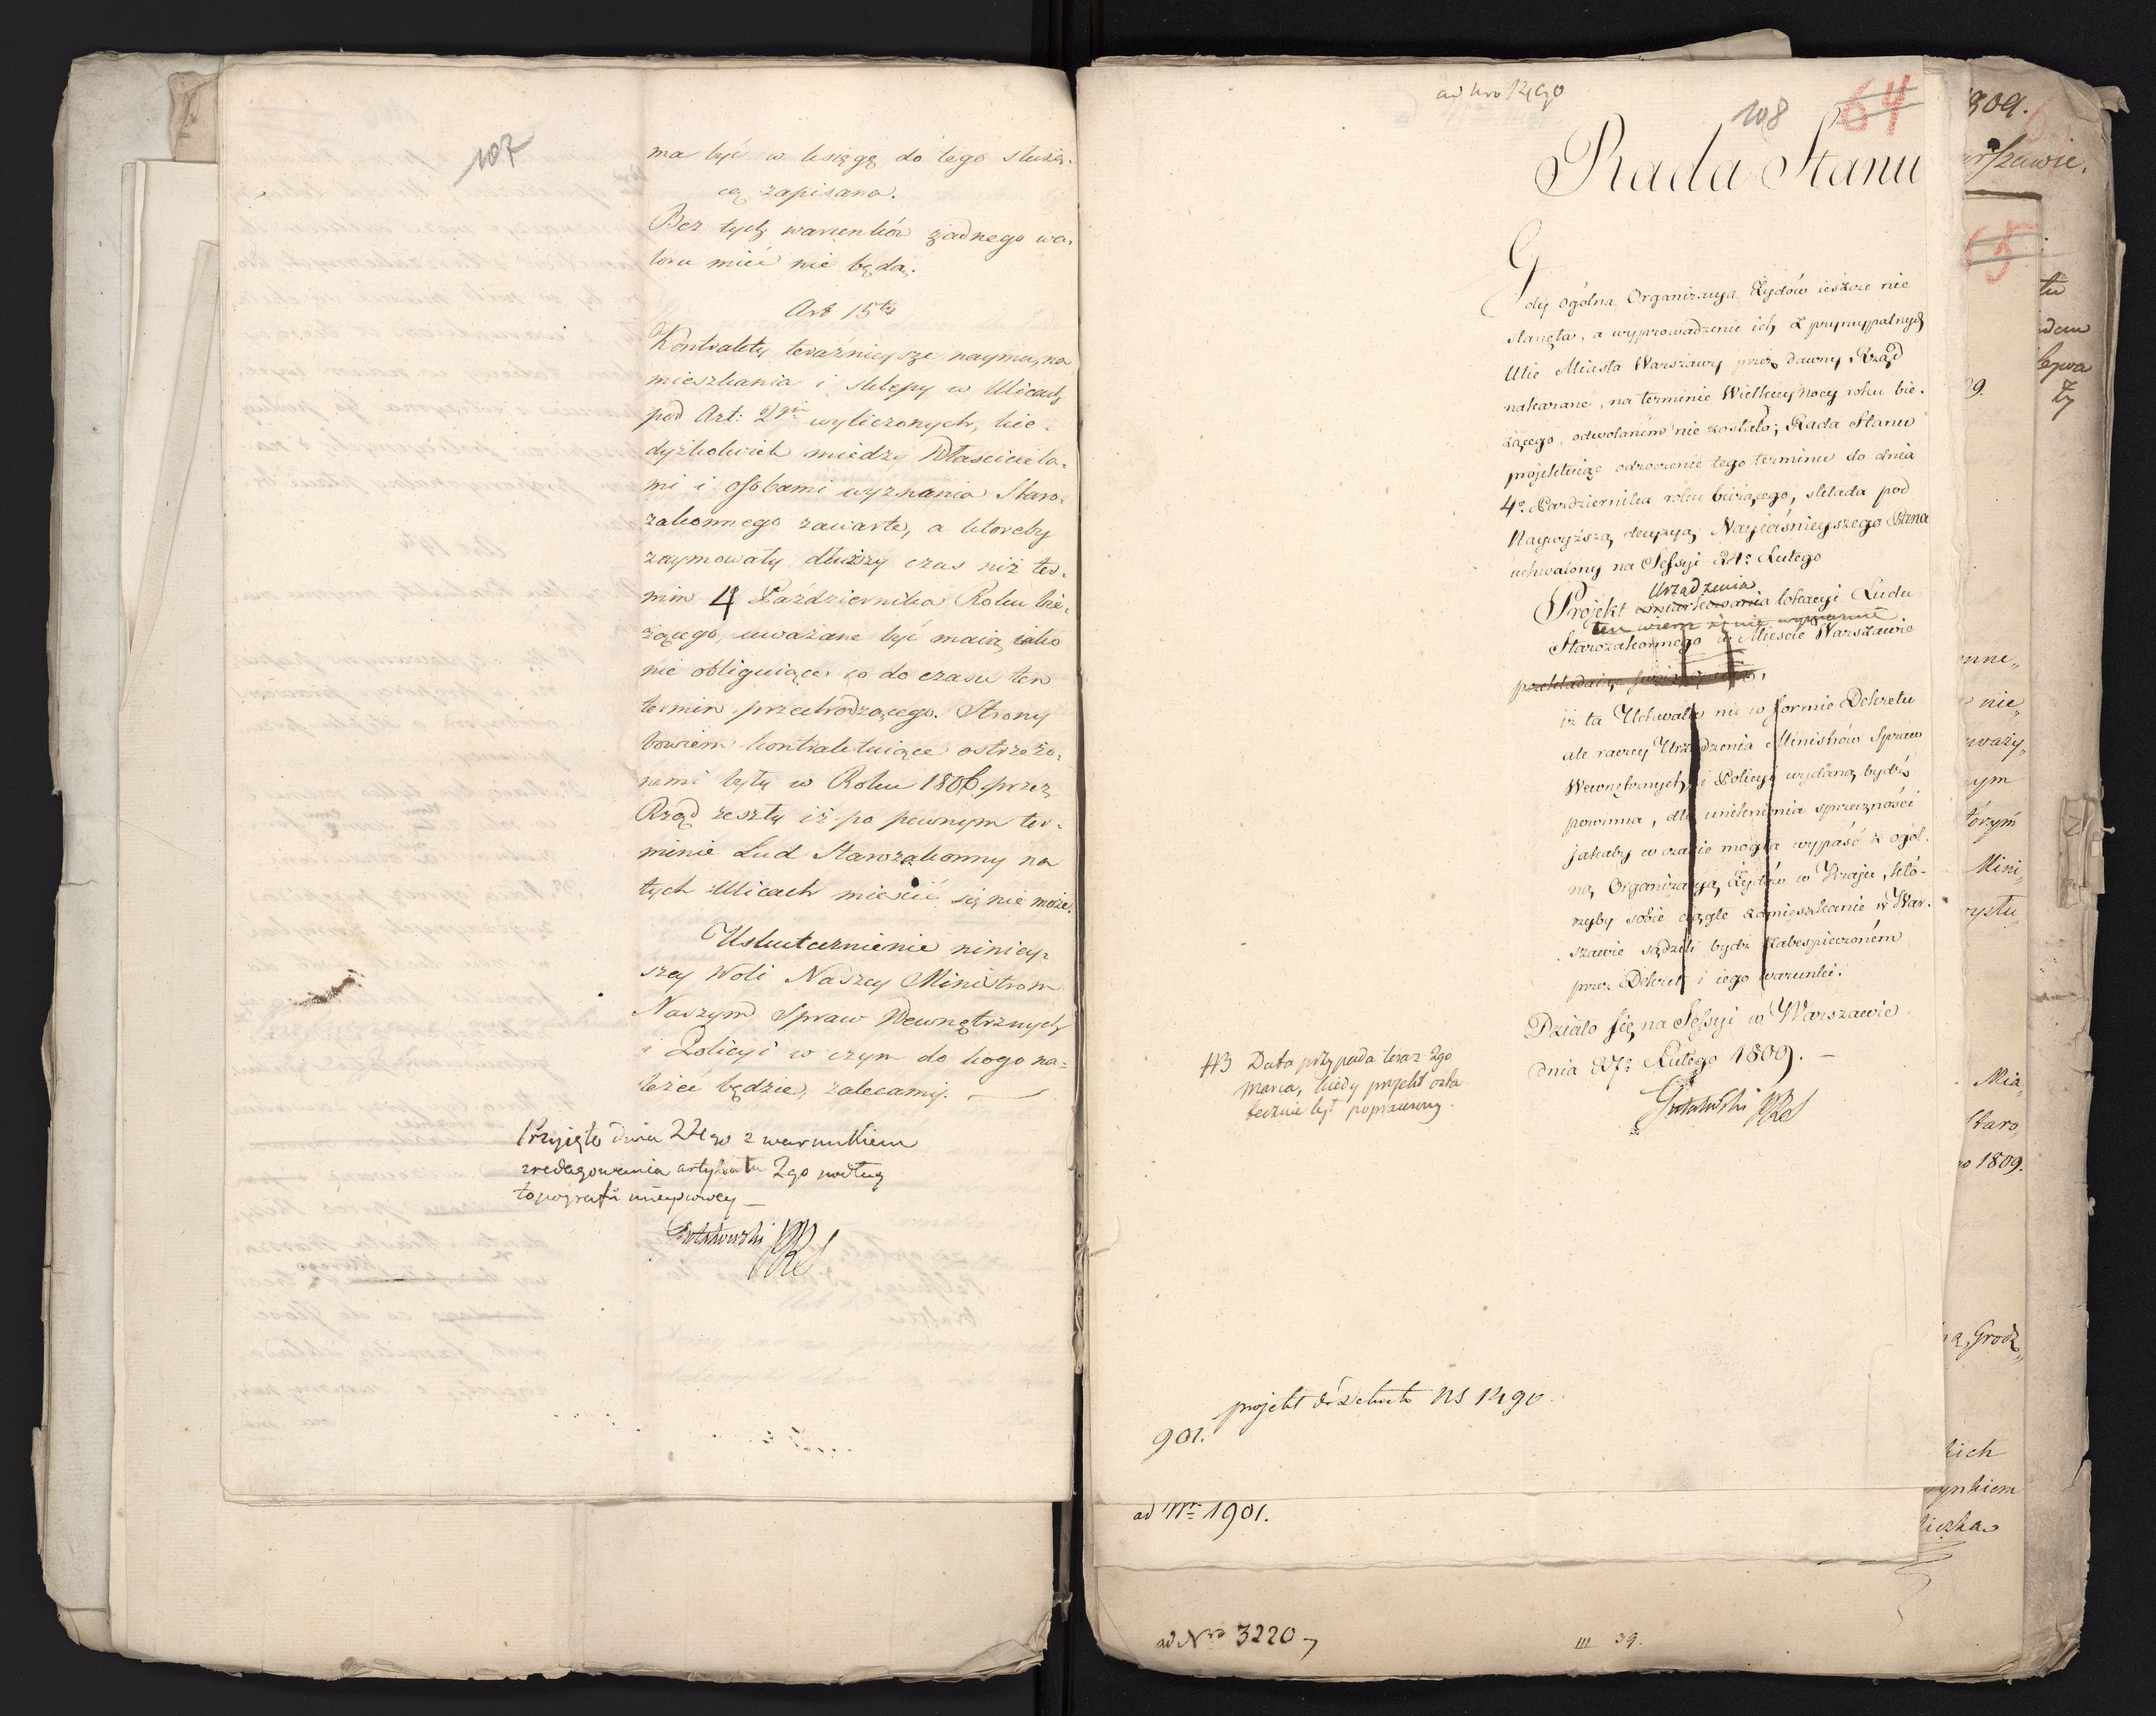 107
ma być w księgę do tego służą-
cą zapisana.
Bez tych warunków żadnego wa-
loru mieć nie będą.
Art 15ty
Kontrakty teraźnieysze naymu, na
mieszkania i sklepy w Ulicach
pod Art: 2gim wyliczonych, kie-
dyżkolwiek między Właściciela-
mi i osobami wyznania Staro-
zakonnego zawarte, a któreby
zaymowały dłuższy czas niż ter-
min 4 Października Roku bie-
żącego, uważane być maią iako
nie obliguiące co do czasu ten
termin przechodzącego. Strony
bowiem kontraktuiące ostrzeżo-
nemi były w Roku 1806 przez
Rząd zeszły iż po pewnym ter-
minie Lud Starozakonny na
tych Ulicach mieścić się nie może.
Uskutecznienie niniey-
szey Woli Naszey Ministrom
Naszym Spraw Wewnętrznych
i Policyi w czym do kogo na-
leżeć będzie, zalecamy.
Przyięto dnia 24go z warunkiem
zredagowania artykułu 2go według
topografii mieyscowey
PRS
108
64
Rada Stanu
Gdy ogólna Organizacya Żydów ieszcze nie
stanęła, a wyprowadzenie ich z pryncypalnych
Ulic Miasta Warszawy przez dawny Rząd
nakazane, na terminie Wielkieynocy roku bie-
żącego, odwołaném nie zostało; Rada Stanu
projektuiąc odroczenie tego terminu do dnia
4o Października roku bieżącego, składa pod
Naywyższą decyzyą Nayiaśnieyszego Pana
uchwalony na Sessyi 24o Lutego
Urządzenia
Projekt lokacyi Ludu
Starozakonnego w Mieście Warszawie
iż ta Uchwała nie w formie Dekretu
ale raczey Urządzenia Ministrów Spraw
Wewnętrznych i Policyi wydaną bydź
powinna, dla uniknienia sprzeczności
jakaby w czasie mogła wypaść z ogól-
ną Organizacyą Żydów w Kraju, któ-
rzyby sobie ciągłe zamieszkanie w War-
szawie sądzili bydź zabespieczoném
przez Dekret i iego warunki.
Działo się na Sessyi w Warszawie
dnia 27o Lutego 1809.
PRS
Data przypada teraz 2go
marca, kiedy projekt osta
tecznie był poprawiony.
projekt
901.
ad Nr 1901.
ad Nro 3220
III 39.
809.
65
nie
Mini
Mia
Staro
1809.